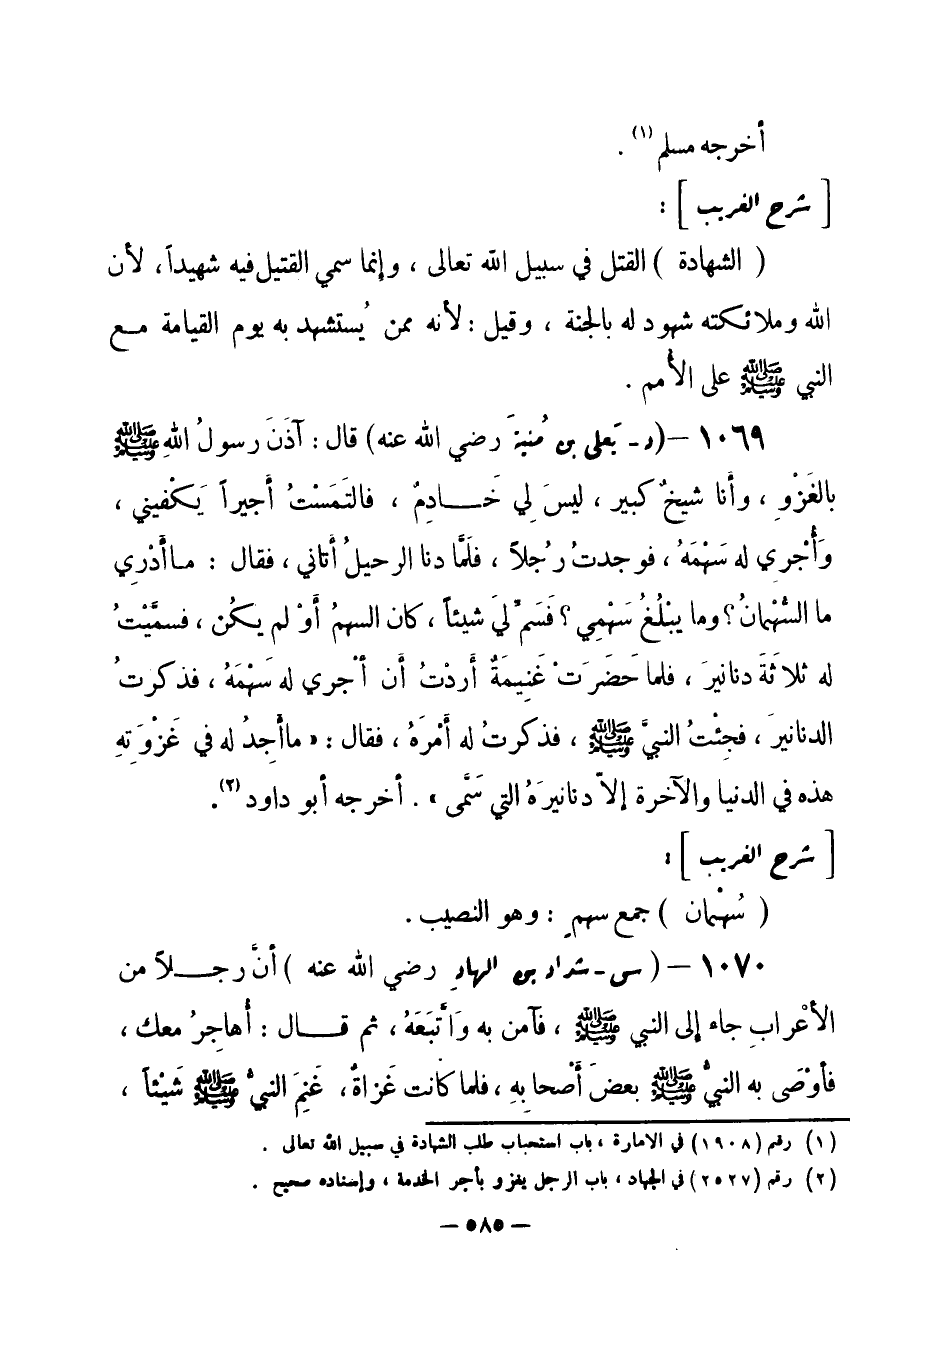 أخرجه مسلم (١) .
[ شرح الغريب ] :
( الشهادة ) القتل في سبيل الله تعالى ، وإنما سمي القتيل فيه شهيداً ، لأن
الله وملائكته شهود له بالجنة ، وقيل : لأنه ممن يُستشهد به يوم القيامة مع
النبي ﷺ على الأُمم .
١٠٦٩ – (د - يَعلى بن مُنيةَ رضي الله عنه) قال : آذَنَ رسولُ اللهِ ﷺ
بالغَزْوِ ، وأنا شيخٌ كبير ، ليسَ لِي خَادِمٌ ، فالتَمَسْتُ أَجيراً يَكْفيني ،
وَأُجْرِي له سَهْمَهُ ، فوجدتُ رُجلاً ، فلَمَّا دنا الرحيلُ أتاني ، فقال : ماأَدْرِي
ما السُّهْمَانُ ؟ وما يبْلُغُ سَهْمِي ؟ فَسَمِّ لِيَ شيئاً ، كان السهمُ أَوْ لم يكُن ، فسمَّيْتُ
له ثلاثَةَ دنانيرَ ، فلما حَضَرَتْ غَنِيمَةٌ أَردْتُ أَن أُجْري له سَهْمَهُ ، فذكرتُ
الدنانيرَ ، فجِئْتُ النبيَّ ﷺ ، فذكرتُ له أَمْرَهُ ، فقال : « ماأَجِدُ له في غَزْوَتِهِ
هذه في الدنيا والآخرة إلاّ دنانيرَهُ التي سَمَّى » . أخرجه أبو داود (٢) .
[ شرح الغريب ] :
( سُهْمان ) جمع سهمٍ : وهو النصيب .
١٠٧٠ – ( س - شداد بن الهادِ رضي الله عنه ) أنَّ رجلاً من
الأَعْرابِ جاء إلى النبي ﷺ ، فآمن به وَاتَّبَعَهُ ، ثم قال : أُهاجِرُ معك ،
فأوْصَى به النبيُّ ﷺ بعضَ أَصْحابِهِ ، فلما كانت غَزاةٌ ، غَنِمَ النبيُّ ﷺ شَيْئاً ،
(١) رقم (١٩٠٨) في الامارة ، باب استحباب طلب الشهادة في سبيل الله تعالى .
(٢) رقم (٢٥٢٧) في الجهاد ، باب الرجل يغزو بأجر الخدمة ، وإسناده صحيح .
– ٥٨٥ –